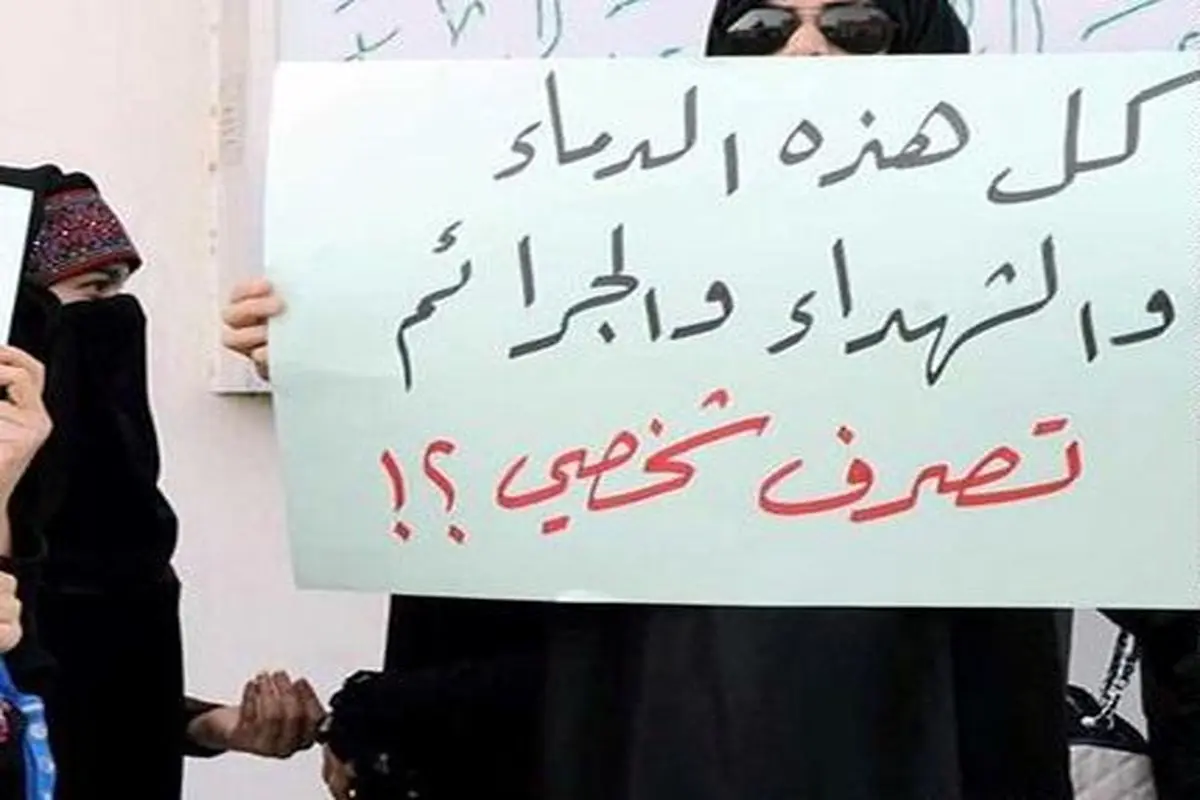 كل هذه الدماء
والشهداء والجرائم
تصرف شخصي ؟!